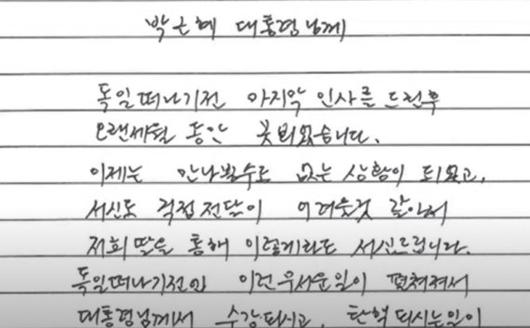 박근혜 대통령님께
독일떠나기전 마지막 인사를 드린후
오랜세월 동안 못뵈었습니다.
이제는 만나뵐수도 없는 상황이 되었고,
서신도 직접전달이 어려울것 같아서
저희 딸을 통해 이렇게라도 서신드립니다.
독일떠나기전의 이런우서운일이 펼쳐져서
대통령님께서 수감되시고, 탄핵 되시는일이